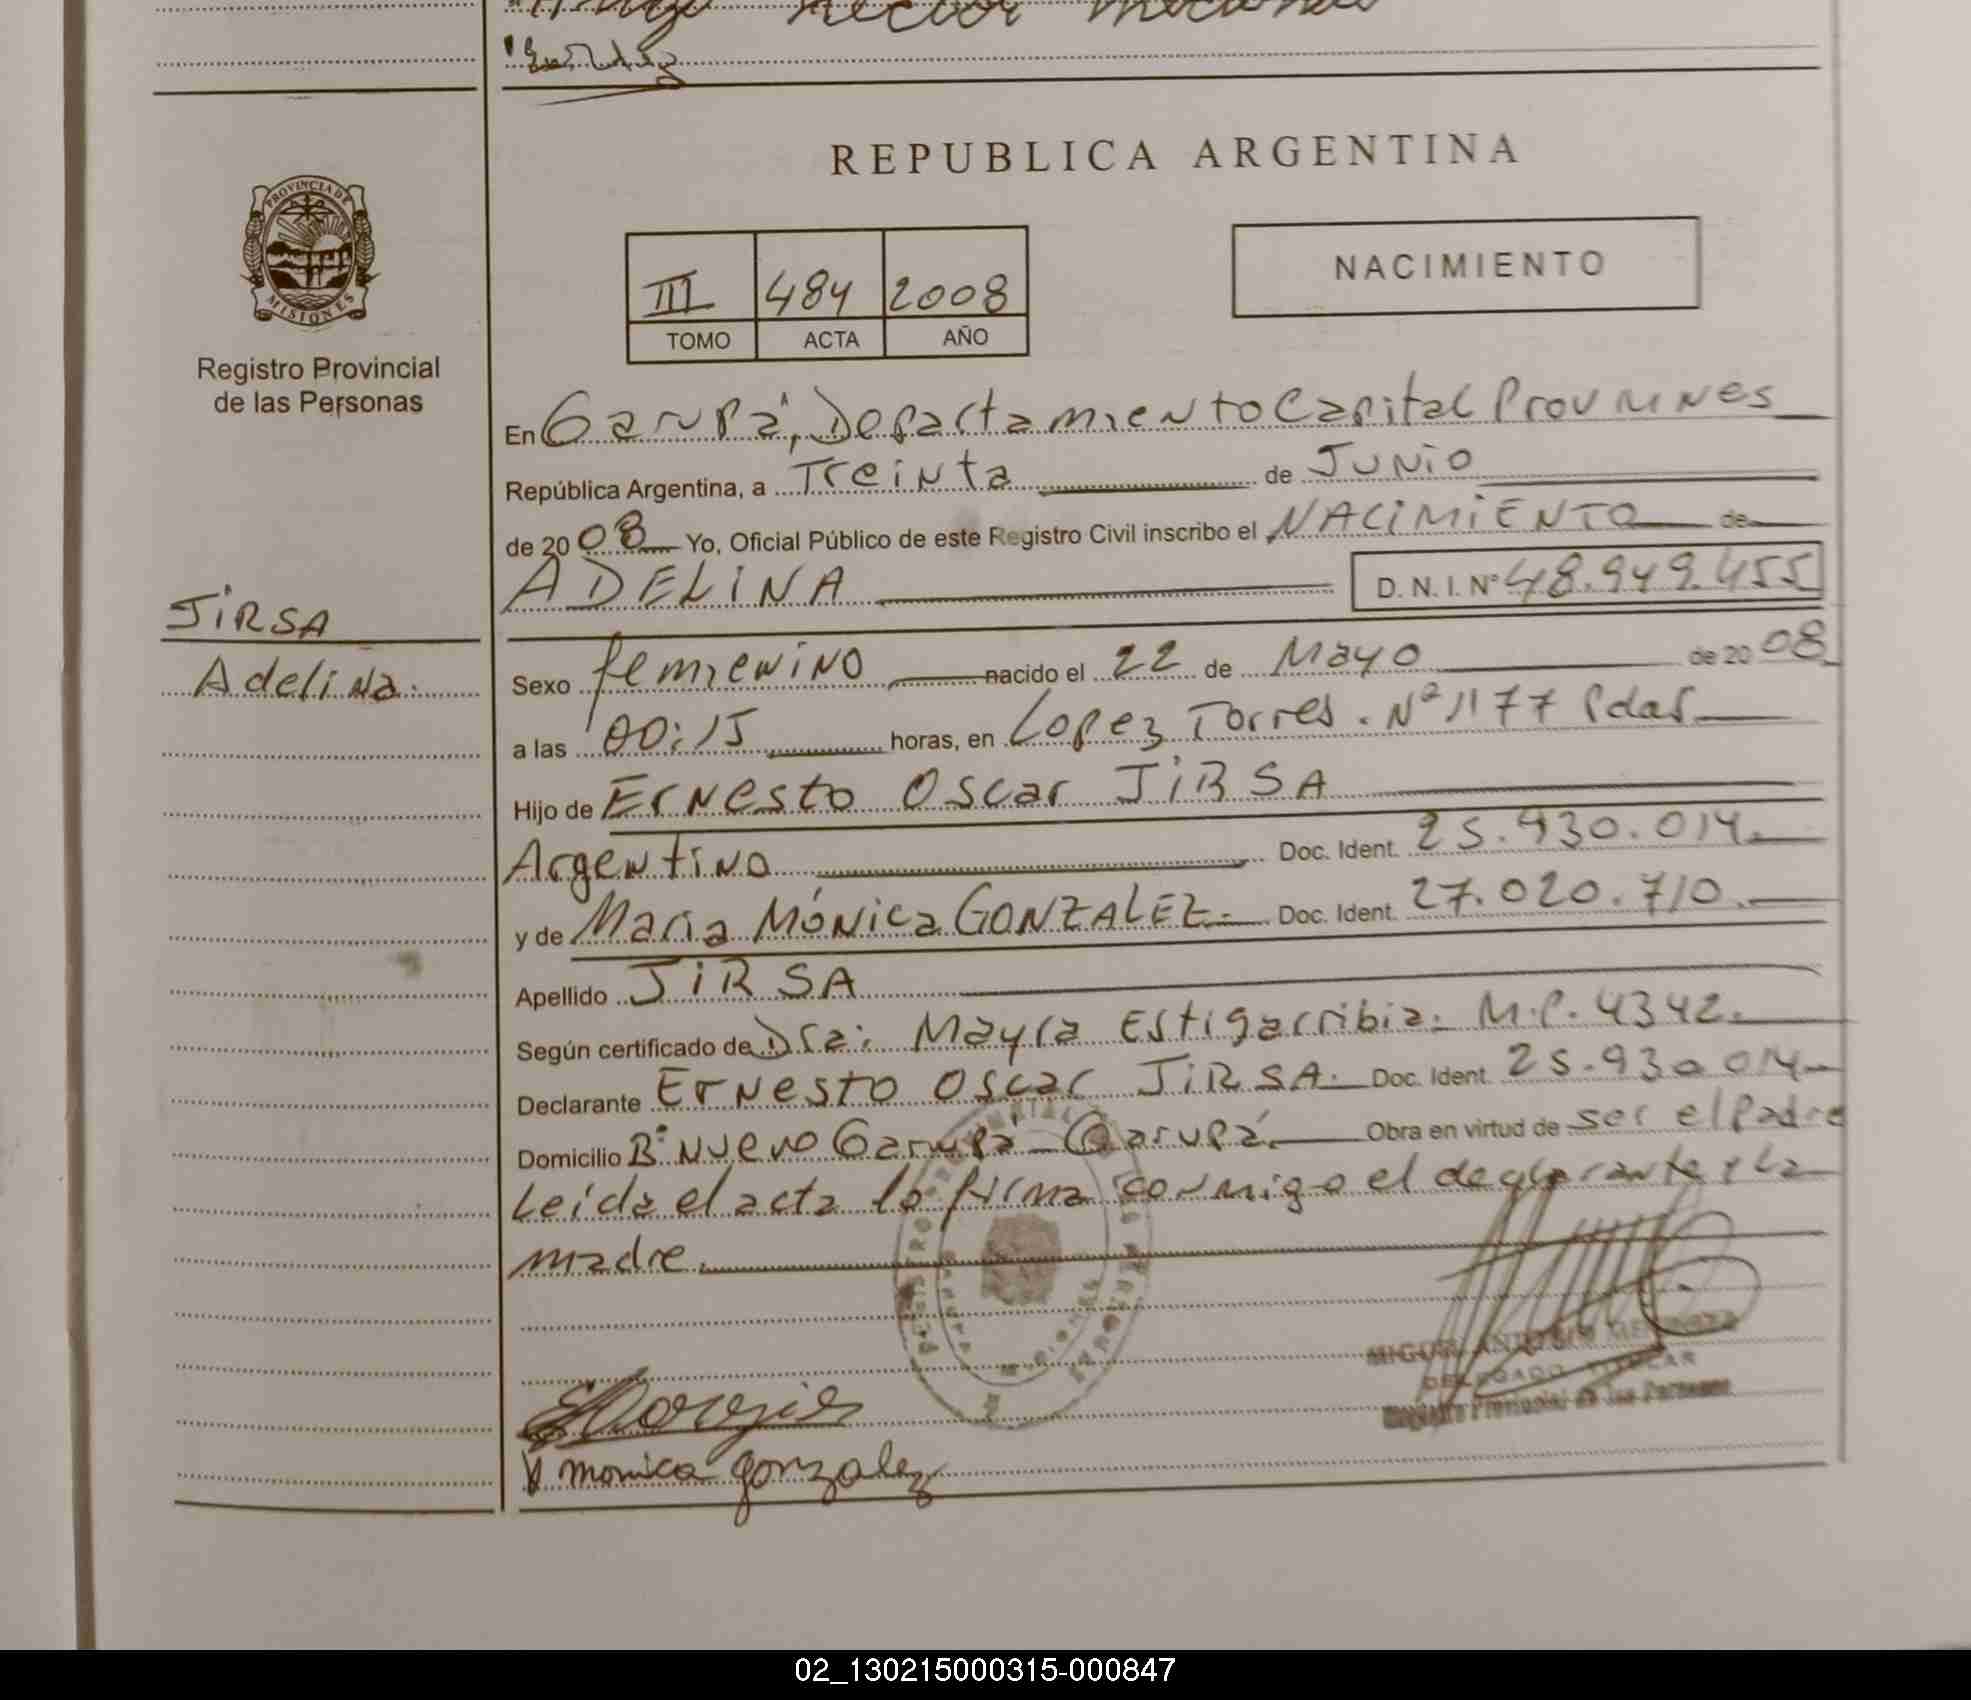 Hector
REPUBLICA ARGENTINA
PROVINCIA DE
MISIONES
III 484 2008
TOMO ACTA AÑO
NACIMIENTO
Registro Provincial
de las Personas
En Garupá, Departamiento Capital Prov
República Argentina, a Treinta de Junio
de 2008 Yo, Oficial Público de este Registro Civil inscribo el NACIMIENTO de
ADELINA D. N. I. Nº 48.949.455
JIRSA
Adelina.
Sexo femienino nacido el 22 de Mayo de 2008
a las 00:15 horas, en Lopez Torres. Nº 1177 Pdas
Hijo de Ernesto Oscar JIRSA
Argentino Doc. Ident. 25.930.014.
y de Maria Mónica GONZALEZ. Doc. Ident. 27.020.710.
Apellido JIRSA
Según certificado de Dra: Mayra Estigarribia. M.P. 4342.
Declarante Ernesto Oscar JIRSA. Doc. Ident. 25.930.014
Domicilio Bº Nuevo Garupá - Garupá. Obra en virtud de ser el Padre
Leída el acta la firma conmigo el declarante y La
madre.
DELEGADO TITULAR
Registro Provincial de las Personas
monica gonzalez
02_130215000315-000847